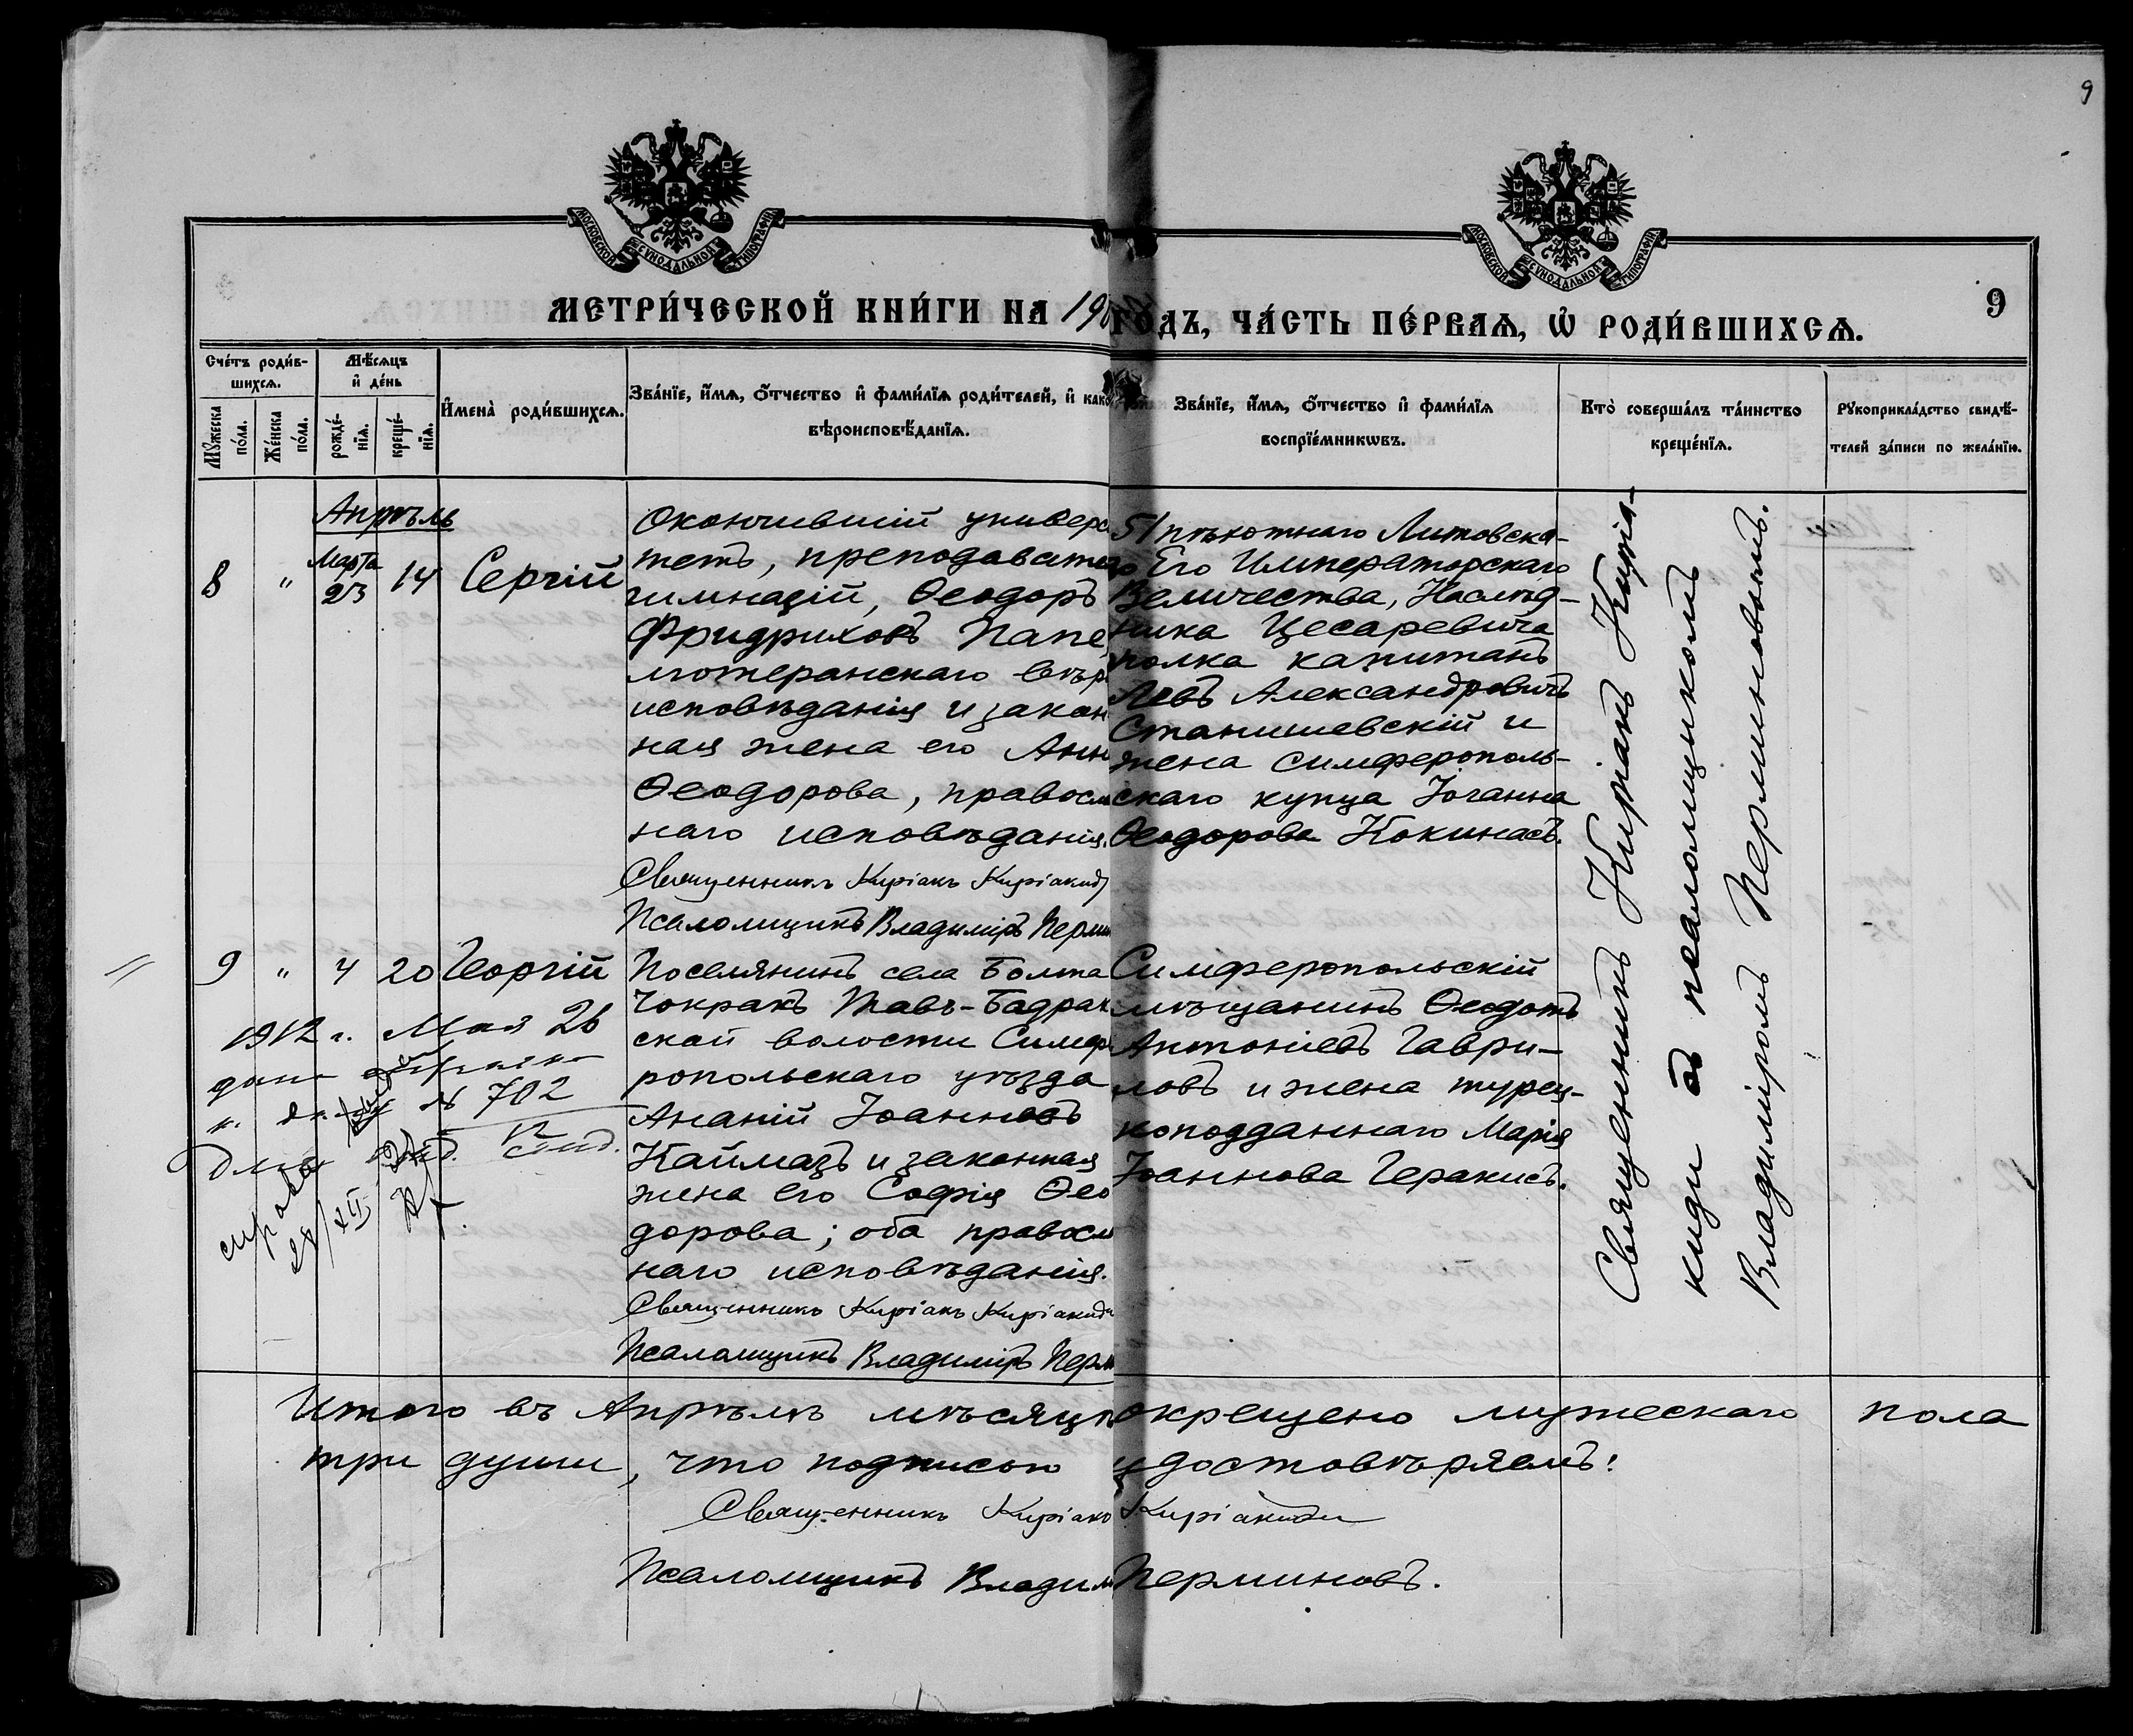 9
МОСКОВСКОЙ СѴНОДАЛЬНОЙ ТИПОГРАФІИ
МОСКОВСКОЙ СѴНОДАЛЬНОЙ ТИПОГРАФІИ
МЕТРИ́ЧЕСКОЙ КНИ́ГИ НА 19
ГО́ДЪ, ЧА́СТЬ ПЕ́РВАѦ, Ѡ҆ РОДИ́ВШИХСѦ.
9
Сче́тъ роди́в-
шихсѧ.
Мѣ́сѧцъ
и҆ де́нь
Мꙋ́жеска
по́ла.
Же́нска
по́ла.
рожде́-
нїѧ.
креще́-
нїѧ.
И҆мена̀ роди́вшихсѧ.
Зва́нїе, и҆́мѧ, ѻ҆́тчество и҆ фами́лїѧ роди́телей, и҆ како
вѣроисповѣ́данїѧ.
Зва́нїе, и҆́мѧ, ѻ҆́тчество и҆ фами́лїѧ
воспрїе́мникѡвъ.
Кто̀ соверша́лъ та́инство
креще́нїѧ.
Рꙋкоприкла́дство свидѣ́-
телей за́писи по жела́нїю.
Апрѣль
8 " Марта 23 14 Сергій
Окончившій универс
тетъ, преподавате
гимназій, Ѳеодоръ
Фридриховъ Папе
лютеранскаго вѣр
исповѣданія и закон
ная жена его Анн
Ѳеодорова, правосл
наго исповѣданія.
Священникъ Киріакъ Киріакид
Псаломщикъ Владиміръ Перми
51 пѣхотнаго Литовска-
го Его Императорскаго
Величества, Наслѣд-
ника Цесаревича
полка капитанъ
Левъ Александровичъ
Станишевскій и
жена симферополь-
скаго купца Іоанна
Ѳеодорова Кокинасъ.
Священникъ Киріакъ Киріа-
киди съ псаломщикомъ
Владиміромъ Перминовымъ.
9 " 4 20 Георгій
Поселянинъ села Болта
Чокракъ Тавъ-Бадрак
ской волости Симфе
ропольскаго уѣзда
Ананій Іоанновъ
Каймазъ и законная
жена его Софія Ѳео
дорова; оба правосл
наго исповѣданія.
Священникъ Киріакъ Киріакиди
Псаломщикъ Владиміръ Перм
Симферопольскій
мѣщанинъ Ѳеодотъ
Антоніевъ Гаври-
ловъ и жена турец-
коподданнаго Марія
Іоаннова Геракисъ.
1912 г. Мая 26
дана
№ 702
Итого въ Апрѣлѣ мѣсяцѣ окрещено мужескаго пола
три души, что подписью удостовѣряемъ:
Священникъ Киріакъ Киріакиди
Псаломщикъ Владим Перминовъ.